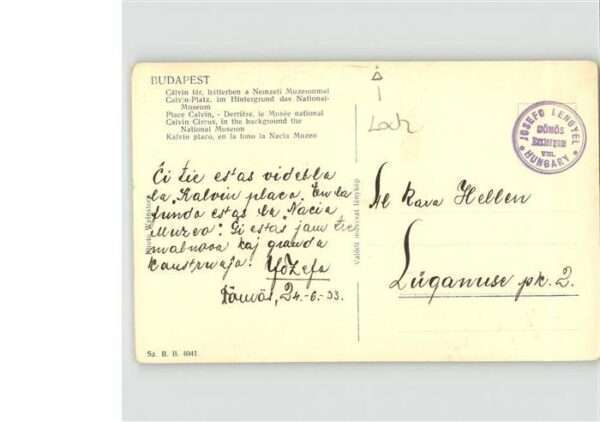 BUDAPEST
Cálvin tér, hátterben a Nemzeti Muzeummal
Calvin-Platz, im Hintergrund das National-
Museum
Place Calvin, - Derrière, le Musée national
Calvin Circus, in the background the
National Museum
Kalvin placo, en la fono la Nacia Muzeo
Ĉi tie estas videbla
la „Kalvin placo. En la
fundo estas la „Nacia
Muzeo". Ĝi estas jam tre
malnova kaj granda
konstruajo. Jozefo
Dömös, 24.-6.-33.
Sz. B. B. 6041
Valódi műveszi fénykép
JOSEFO LENGYEL
DÖMÖS
HUNGARY
Al Kara Hellen
Lüganuse pk. 2.